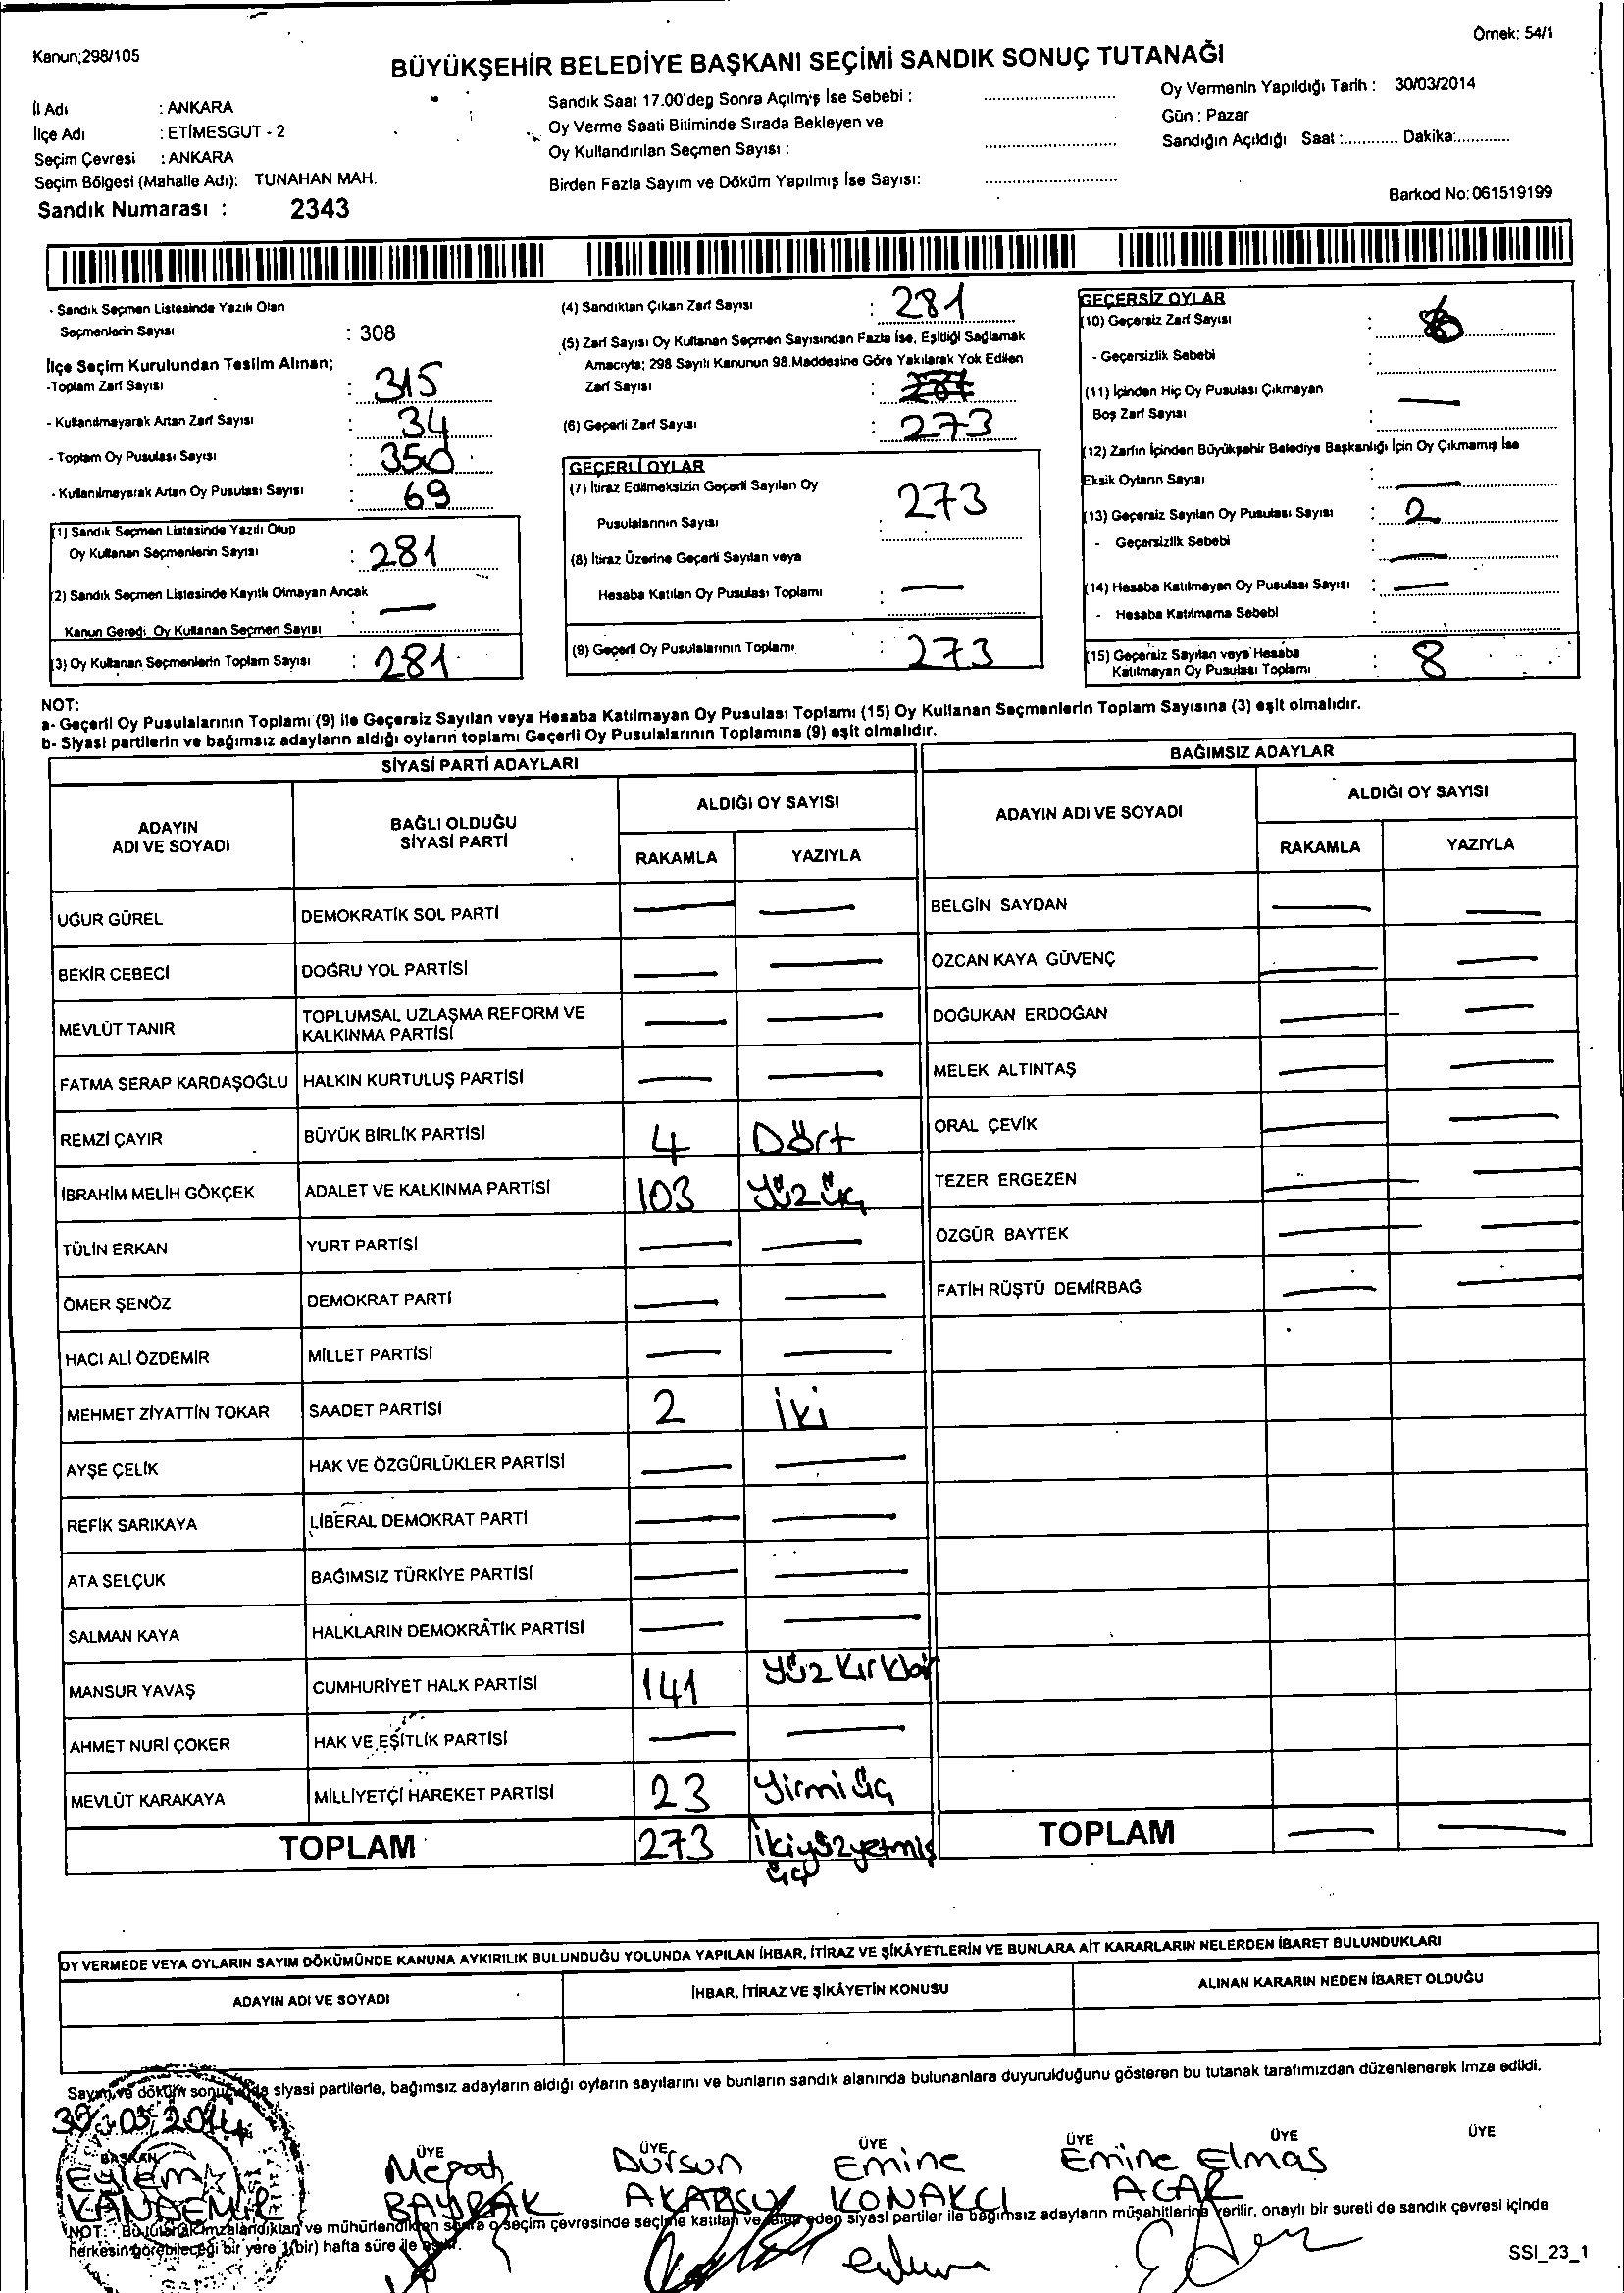 Kanun;298/105
Örnek: 54/1
BÜYÜKŞEHİR BELEDİYE BAŞKANI SEÇİMİ SANDIK SONUÇ TUTANAĞI
İl Adı : ANKARA
İlçe Adı : ETİMESGUT - 2
Seçim Çevresi : ANKARA
Seçim Bölgesi (Mahalle Adı): TUNAHAN MAH.
Sandık Numarası : 2343
Sandık Saat 17.00'den Sonra Açılmış İse Sebebi :
Oy Verme Saati Bitiminde Sırada Bekleyen ve
Oy Kullandırılan Seçmen Sayısı :
Birden Fazla Sayım ve Döküm Yapılmış İse Sayısı:
Oy Vermenin Yapıldığı Tarih : 30/03/2014
Gün : Pazar
Sandığın Açıldığı Saat :............ Dakika:............
Barkod No: 061519199
- Sandık Seçmen Listesinde Yazılı Olan
Seçmenlerin Sayısı : 308
İlçe Seçim Kurulundan Teslim Alınan;
-Toplam Zarf Sayısı : 315
- Kullanılmayarak Artan Zarf Sayısı : 34
- Toplam Oy Pusulası Sayısı : 350
- Kullanılmayarak Artan Oy Pusulası Sayısı : 69
(1) Sandık Seçmen Listesinde Yazılı Olup
Oy Kullanan Seçmenlerin Sayısı : 281
(2) Sandık Seçmen Listesinde Kayıtlı Olmayan Ancak
Kanun Gereği Oy Kullanan Seçmen Sayısı : —
(3) Oy Kullanan Seçmenlerin Toplam Sayısı : 281
(4) Sandıktan Çıkan Zarf Sayısı : 281
(5) Zarf Sayısı Oy Kullanan Seçmen Sayısından Fazla İse, Eşitliği Sağlamak
Amacıyla; 298 Sayılı Kanunun 98.Maddesine Göre Yakılarak Yok Edilen
Zarf Sayısı :
(6) Geçerli Zarf Sayısı : 273
GEÇERLİ OYLAR
(7) İtiraz Edilmeksizin Geçerli Sayılan Oy
Pusulalarının Sayısı : 273
(8) İtiraz Üzerine Geçerli Sayılan veya
Hesaba Katılan Oy Pusulası Toplamı : —
(9) Geçerli Oy Pusulalarının Toplamı : 273
GEÇERSİZ OYLAR
(10) Geçersiz Zarf Sayısı :
- Geçersizlik Sebebi :
(11) İçinden Hiç Oy Pusulası Çıkmayan
Boş Zarf Sayısı : —
(12) Zarfın İçinden Büyükşehir Belediye Başkanlığı İçin Oy Çıkmamış İse
Eksik Oyların Sayısı : —
(13) Geçersiz Sayılan Oy Pusulası Sayısı : 2
- Geçersizlik Sebebi : —
(14) Hesaba Katılmayan Oy Pusulası Sayısı : —
- Hesaba Katılmama Sebebi :
(15) Geçersiz Sayılan veya Hesaba
Katılmayan Oy Pusulası Toplamı : 8
NOT:
a- Geçerli Oy Pusulalarının Toplamı (9) ile Geçersiz Sayılan veya Hesaba Katılmayan Oy Pusulası Toplamı (15) Oy Kullanan Seçmenlerin Toplam Sayısına (3) eşit olmalıdır.
b- Siyasi partilerin ve bağımsız adayların aldığı oyların toplamı Geçerli Oy Pusulalarının Toplamına (9) eşit olmalıdır.
SİYASİ PARTİ ADAYLARI
ADAYIN ADI VE SOYADI BAĞLI OLDUĞU SİYASİ PARTİ ALDIĞI OY SAYISI
RAKAMLA YAZIYLA
UĞUR GÜREL DEMOKRATİK SOL PARTİ — —
BEKİR CEBECİ DOĞRU YOL PARTİSİ — —
MEVLÜT TANIR TOPLUMSAL UZLAŞMA REFORM VE KALKINMA PARTİSİ — —
FATMA SERAP KARDAŞOĞLU HALKIN KURTULUŞ PARTİSİ — —
REMZİ ÇAYIR BÜYÜK BİRLİK PARTİSİ 4 Dört
İBRAHİM MELİH GÖKÇEK ADALET VE KALKINMA PARTİSİ 103 Yüzüç
TÜLİN ERKAN YURT PARTİSİ — —
ÖMER ŞENÖZ DEMOKRAT PARTİ — —
HACI ALİ ÖZDEMİR MİLLET PARTİSİ — —
MEHMET ZİYATTİN TOKAR SAADET PARTİSİ 2 İki
AYŞE ÇELİK HAK VE ÖZGÜRLÜKLER PARTİSİ — —
REFİK SARIKAYA LİBERAL DEMOKRAT PARTİ — —
ATA SELÇUK BAĞIMSIZ TÜRKİYE PARTİSİ — —
SALMAN KAYA HALKLARIN DEMOKRATİK PARTİSİ — —
MANSUR YAVAŞ CUMHURİYET HALK PARTİSİ 141 Yüz Kırkbir
AHMET NURİ ÇOKER HAK VE EŞİTLİK PARTİSİ — —
MEVLÜT KARAKAYA MİLLİYETÇİ HAREKET PARTİSİ 23 Yirmi üç
TOPLAM 273 İkiyüzyetmiş
üç
BAĞIMSIZ ADAYLAR
ADAYIN ADI VE SOYADI ALDIĞI OY SAYISI
RAKAMLA YAZIYLA
BELGİN SAYDAN — —
ÖZCAN KAYA GÜVENÇ — —
DOĞUKAN ERDOĞAN — —
MELEK ALTINTAŞ — —
ORAL ÇEVİK — —
TEZER ERGEZEN — —
ÖZGÜR BAYTEK — —
FATİH RÜŞTÜ DEMİRBAĞ — —
TOPLAM — —
OY VERMEDE VEYA OYLARIN SAYIM DÖKÜMÜNDE KANUNA AYKIRILIK BULUNDUĞU YOLUNDA YAPILAN İHBAR, İTİRAZ VE ŞİKÂYETLERİN VE BUNLARA AİT KARARLARIN NELERDEN İBARET BULUNDUKLARI
ADAYIN ADI VE SOYADI İHBAR, İTİRAZ VE ŞİKÂYETİN KONUSU ALINAN KARARIN NEDEN İBARET OLDUĞU
Sayım ve döküm sonucunda siyasi partilerle, bağımsız adayların aldığı oyların sayılarını ve bunların sandık alanında bulunanlara duyurulduğunu gösteren bu tutanak tarafımızdan düzenlenerek imza edildi.
30.03.2014
BAŞKAN ÜYE ÜYE ÜYE ÜYE ÜYE ÜYE
Eylem Dursun Emine Emine Elmas
KANDEMİR BAYRAK AKARSU KONAKÇI ACAR
NOT: Bu tutanak imzalandıktan ve mühürlendikten sonra o seçim çevresinde seçime katılan ve talep eden siyasi partiler ile bağımsız adayların müşahitlerine verilir, onaylı bir sureti de sandık çevresi içinde
herkesin görebileceği bir yere 1(bir) hafta süre ile asılır.
SSI_23_1